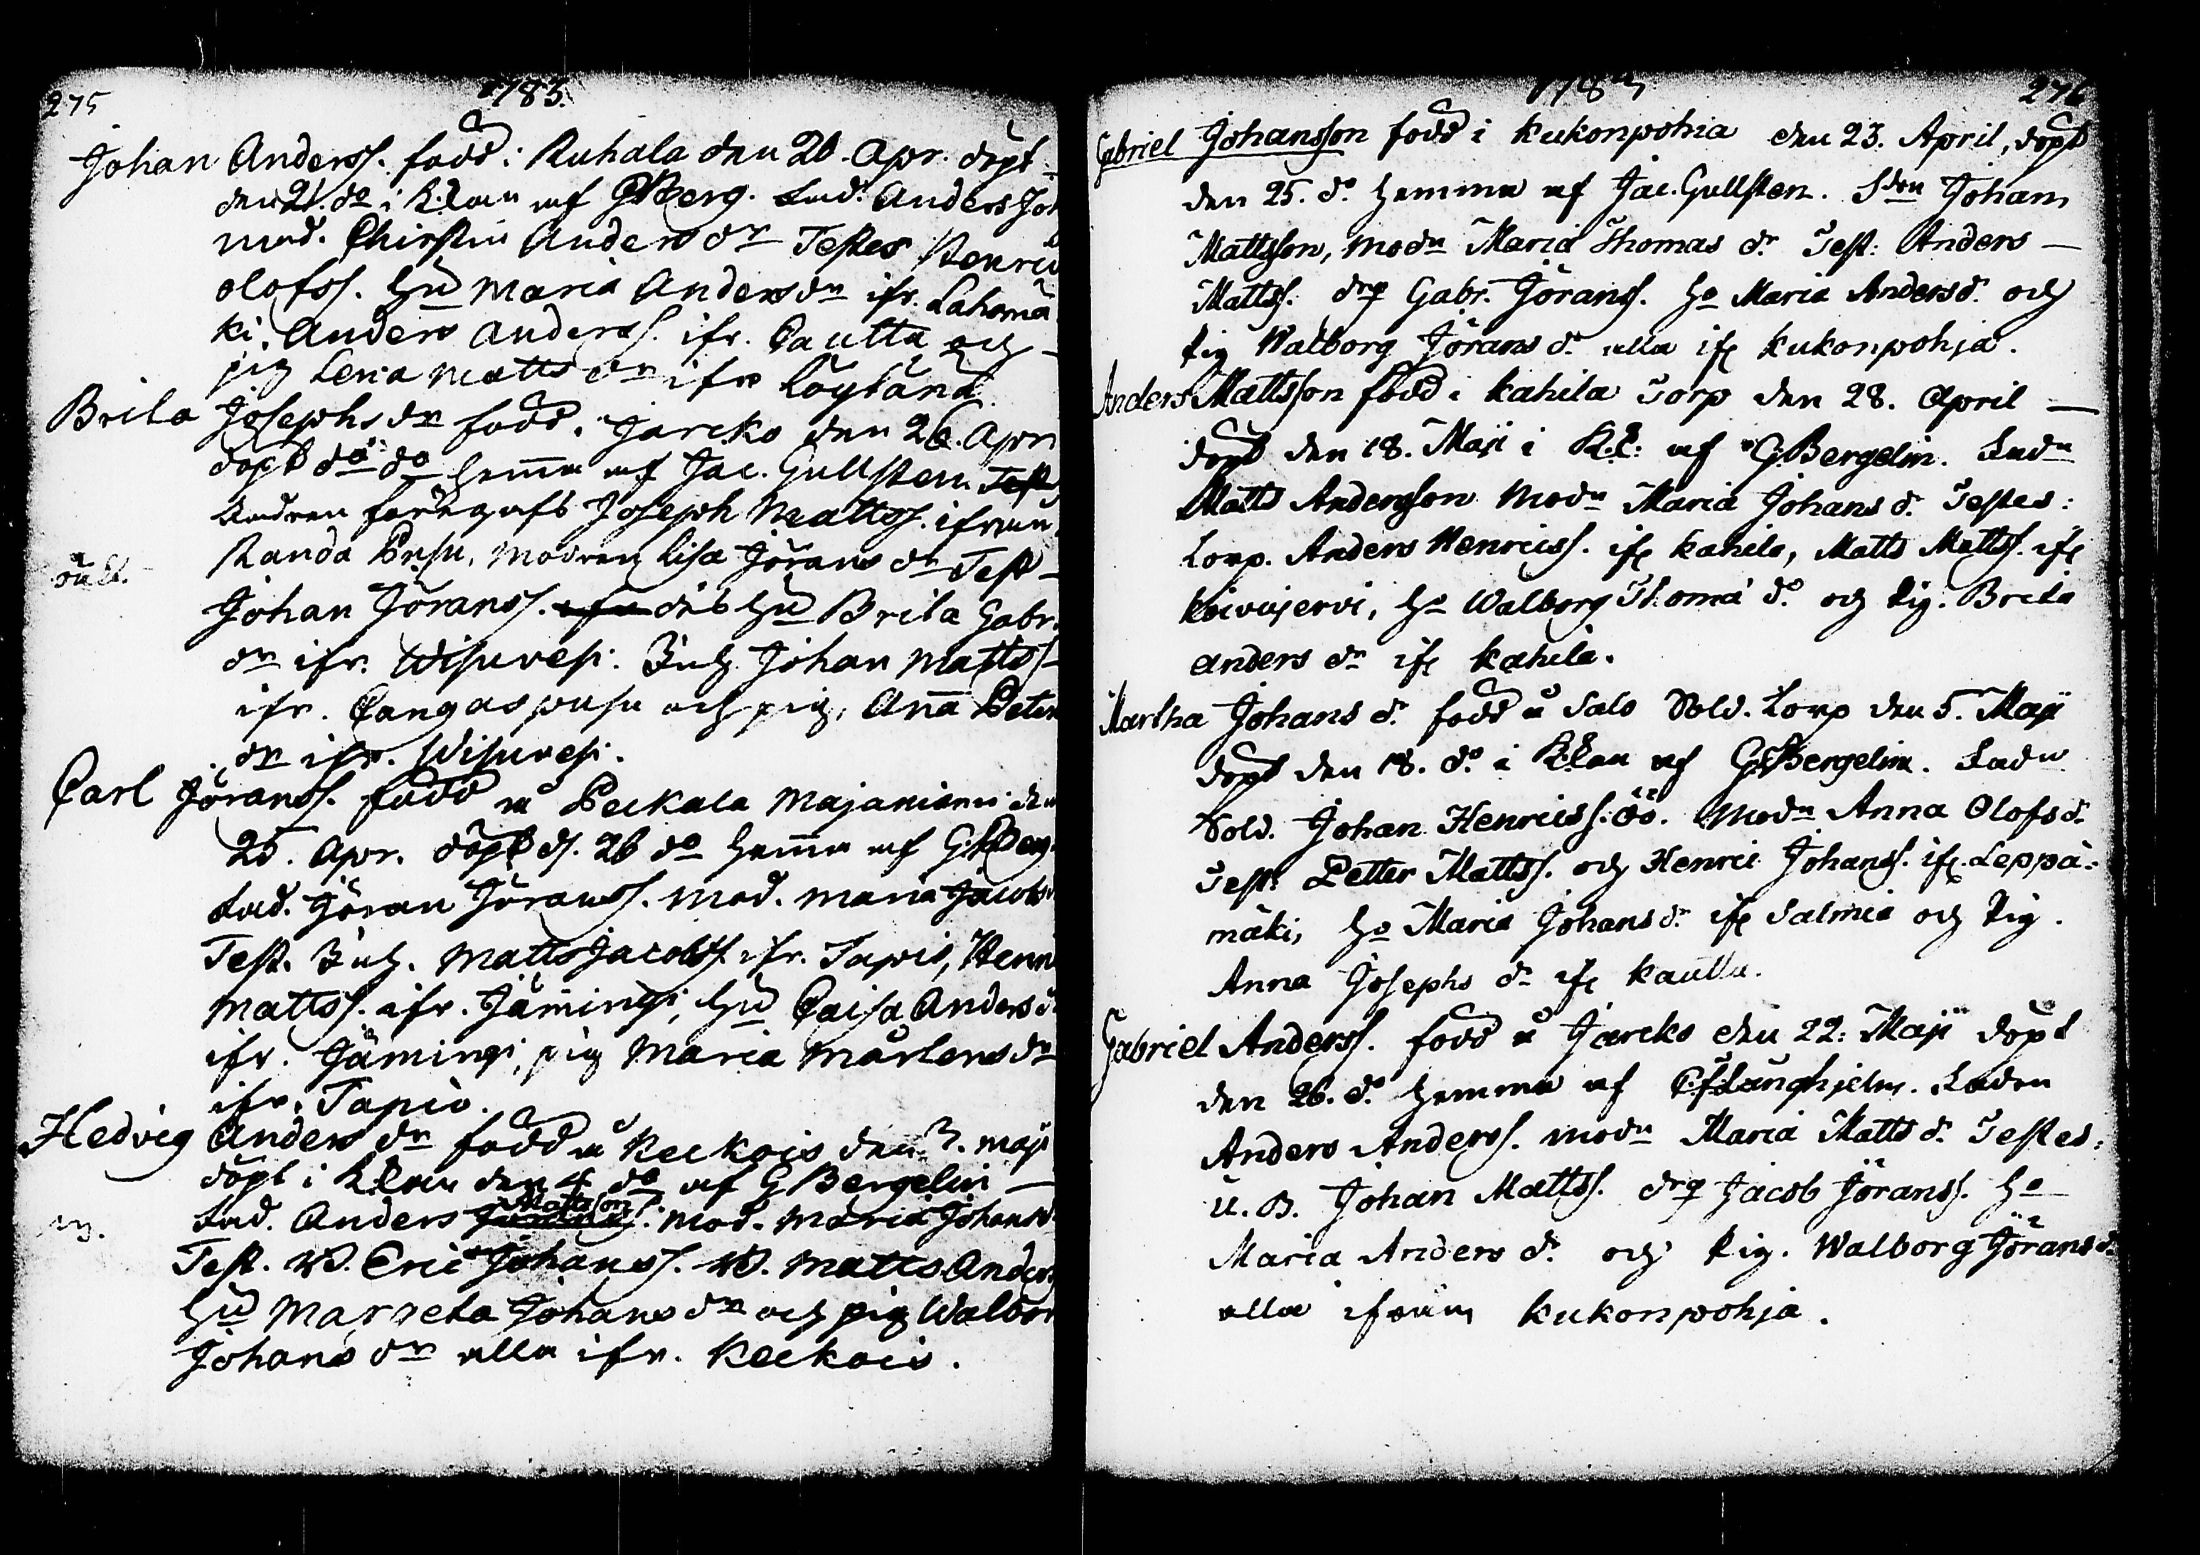 275
1783.
Johan Anderss. född i Ruhala den 20. Apr. döpt
den 21. do i K:kan af GBerg. Fad: Anders Joh
mod. Christin Anders dr Testes Henric
Olofss. hu Maria Anders dr ifr. Lahomä
ki, Anders Anderss. ifr. Cautta och
pig Lena Matts dr ifr Löytänä.
Brita Josephs dr född i Jarcko den 26. Apr
döpt do do hema af Jac. Gullsten Test
fadren föregafs Joseph Mattss. ifrån
Randa Pusu, modren Lisa Jörans dr Test
oäkt.
Johan Jöranss. hu Brita Gabr.
dr ifr. Wisuvesi. Johan Mattss
ifr. Cangaspusu och pig. Ana Peters
dr ifr. Wisuvesi.
Carl Jöranss. född å Peckala Majaniemi den
25. Apr. döpt d. 26 do hema af G.Berg.
fad. Jöran Jöranss. mod. Maria Jacobs
Test. Matts Jacobss. ifr. Tapio, Henri
Mattss. ifr. Jämingi, hu Caisa Anders d
ifr. Jämingi, pig Maria Mårtens dr
ifr. Tapio.
Hedvig Anders dr född å Keckois den 3. Maji
döpt i K:kan den 4 do af G Bergelin
Mattsson
fad. Anders mod. Maria Johans d
Test. W. Eric Johanss. W. Matts Anders
hu Margeta Johans dr och pig Walbor
Johans dr alla ifr. Keckois.
178
276
Gabriel Johansson född i Kukonpohia den 23. April, döpt
den 25. do hemma af Jac. Gullsten. Johan
Mattsson, modn Maria Thomas dr Test: Anders
Mattss. drg Gabr. Jöranss. ho Maria Anders d. och
Pig Walborg Jörans dr alla ifr Kukonpohja.
Anders Mattsson född i Kahila Torp den 28. April
döpt den 18. Maji i K:k: af G.Bergelin. Fadn
Matts Andersson Modn Maria Johans dr Testes:
Torp. Anders Henricss. ifr Kahila, Matts Mattss. ifr
Koivujervi, ho Walborg Thoma dr och Pig. Brita
Anders dr ifr Kahila.
Martha Johans dr född å Salo Sold. Torp den 5. Maji
döpt den 18. do i K:kan af G.Bergelin. Fadn
Sold. Johan Henricss. Öö. Modn Anna Olofs dr
Test: Petter Mattss. och Henric Johanss. ifr. Leppä-
mäki, ho Maria Johans dr ifr Salmia och Pig.
Anna Josephs dr ifr Kautta.
Gabriel Anderss. född å Jarcko den 22. Maji döpt
den 26. do hemma af C.f.Langhjelm. Fadren
Anders Anderss. modn Maria Matts dr Testes:
U. B. Johan Mattss. drg Jacob Jöranss. ho
Maria Anders dr och Pig. Walborg Jörans dr
alla ifrån Kukonpohja.